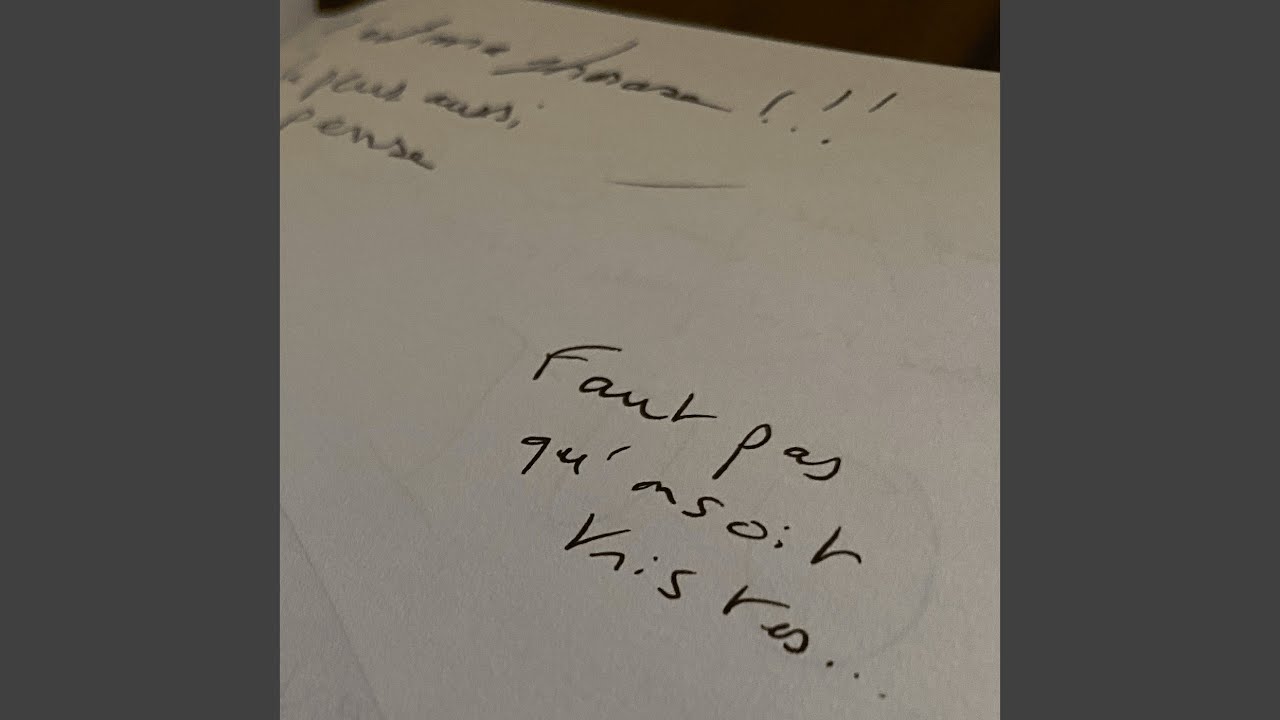 phrase !!!
peux aussi,
pense
Faut pas
qu'on soit
tristes...